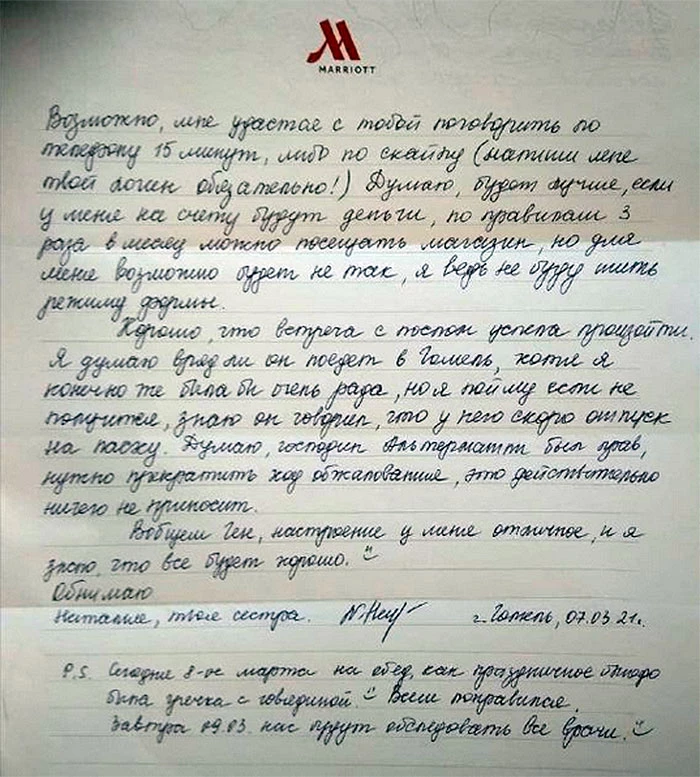 MARRIOTT
Возможно, мне удастся с тобой поговорить по
телефону 15 минут, либо по скайпу (напиши мне
твой логин обязательно!) Думаю, будет лучше, если
у меня на счету будут деньги, по правилам 3
раза в месяц можно посещать магазин, но для
меня возможно будет не так, я ведь не буду шить
режиму формы.
Хорошо, что встреча с послом успела произойти.
Я думаю вряд ли он поедет в Гомель, хотя я
конечно же была бы очень рада, но я пойму если не
получится, знаю он говорил, что у него скоро отпуск
на пасху. Думаю, господин Альтерматт был прав,
нужно прекратить ход обжалования, это действительно
ничего не приносит.
Вобщем Ген, настроение у меня отличное, и я
знаю, что все будет хорошо.
Обнимаю
Наталие, твоя сестра. г. Гомель, 07.03.21г.
P.S. Сегодня 8-ое марта на обед, как праздничное блюдо
была гречка с говядиной. Всем понравился.
Завтра 09.03. нас будут обследовать все врачи.